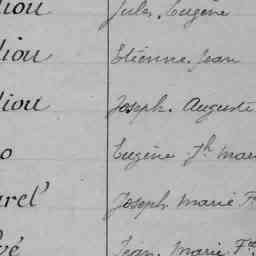 liou Jules, Eugène
liou Etienne Jean
liou Joseph. Auguste
o Eugène Jh Mari
urel Joseph Marie F
vé Jean, Marie, Fçs